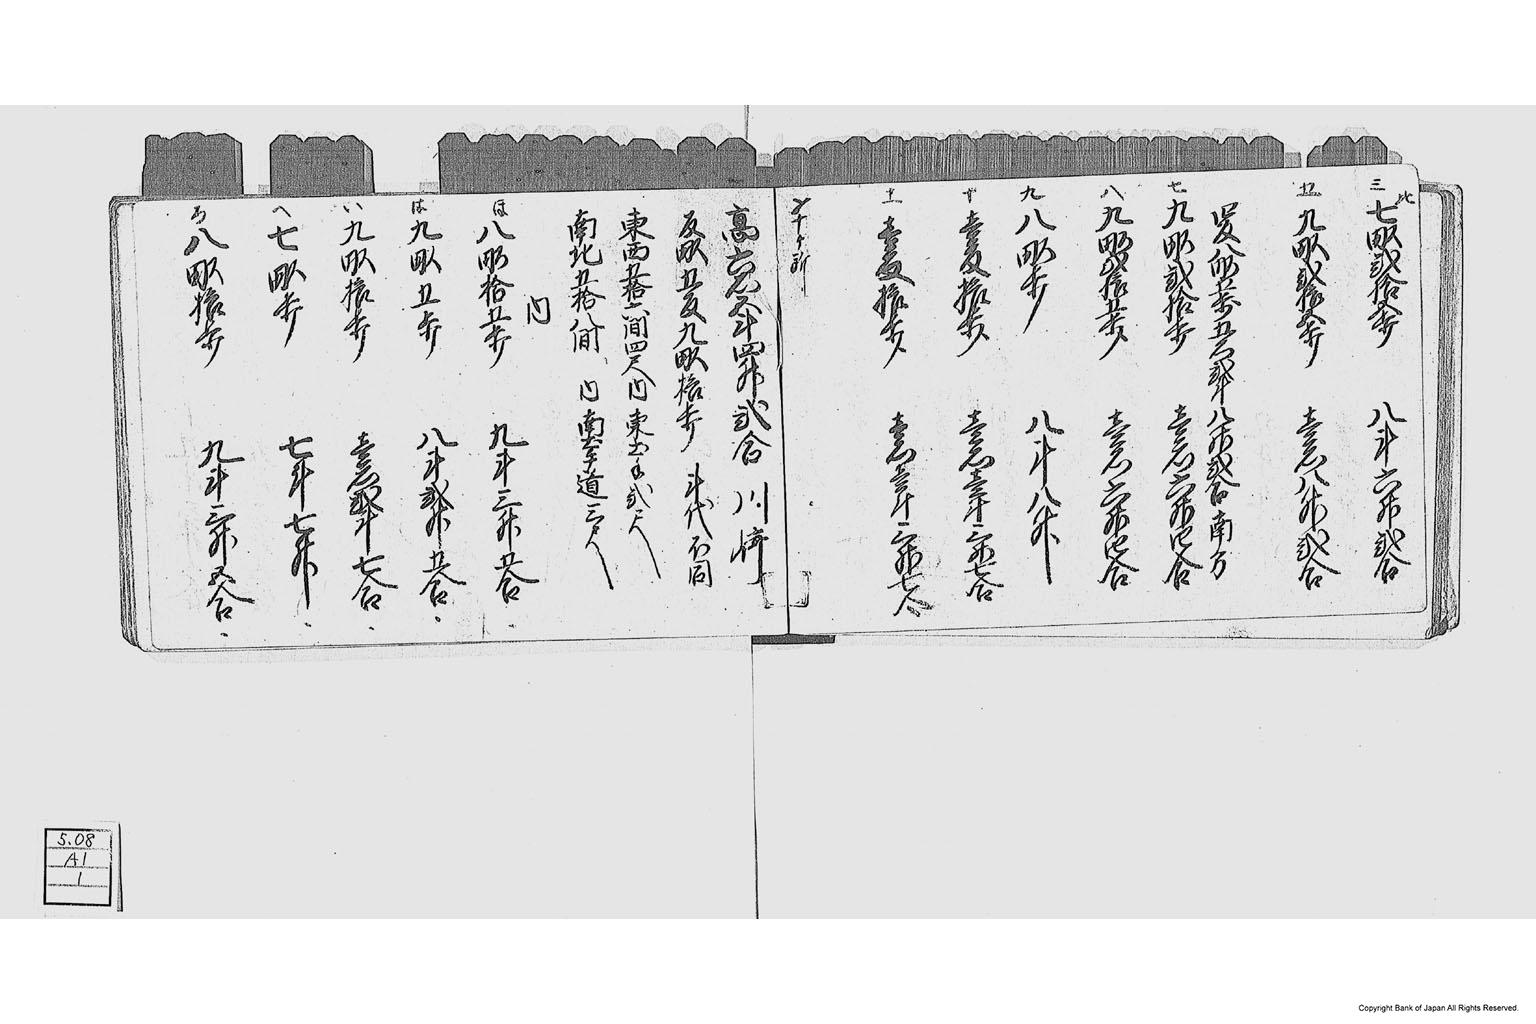 此
三 七畝弐拾歩 八斗六升弐合
九畝弐拾歩 壱石八升弐合
四反八畝五歩 五石弐斗八升弐合 南方
七 九畝弐拾歩 壱石六升四合
八 九畝弐拾五歩 壱石六升四合
九 八畝歩 八斗八升
十 壱反拾歩 壱石壱斗三升七合
十一 壱反拾歩 壱石壱斗三升七合
高六石五斗四升弐合 川崎
反畝五反九畝拾歩 斗代不同
東西五拾六間四尺 内 東 弐尺
南北五拾八間 内 南 道三尺
内
ほ 八畝拾五歩 九斗三升五合
は 九畝五歩 八斗弐升五合
い 九畝拾歩 壱石弐斗七合
へ 七畝歩 七斗七升
ろ 八畝拾歩 九斗三升五合
5.08
A1
1
Copyright Bank of Japan All Rights Reserved.